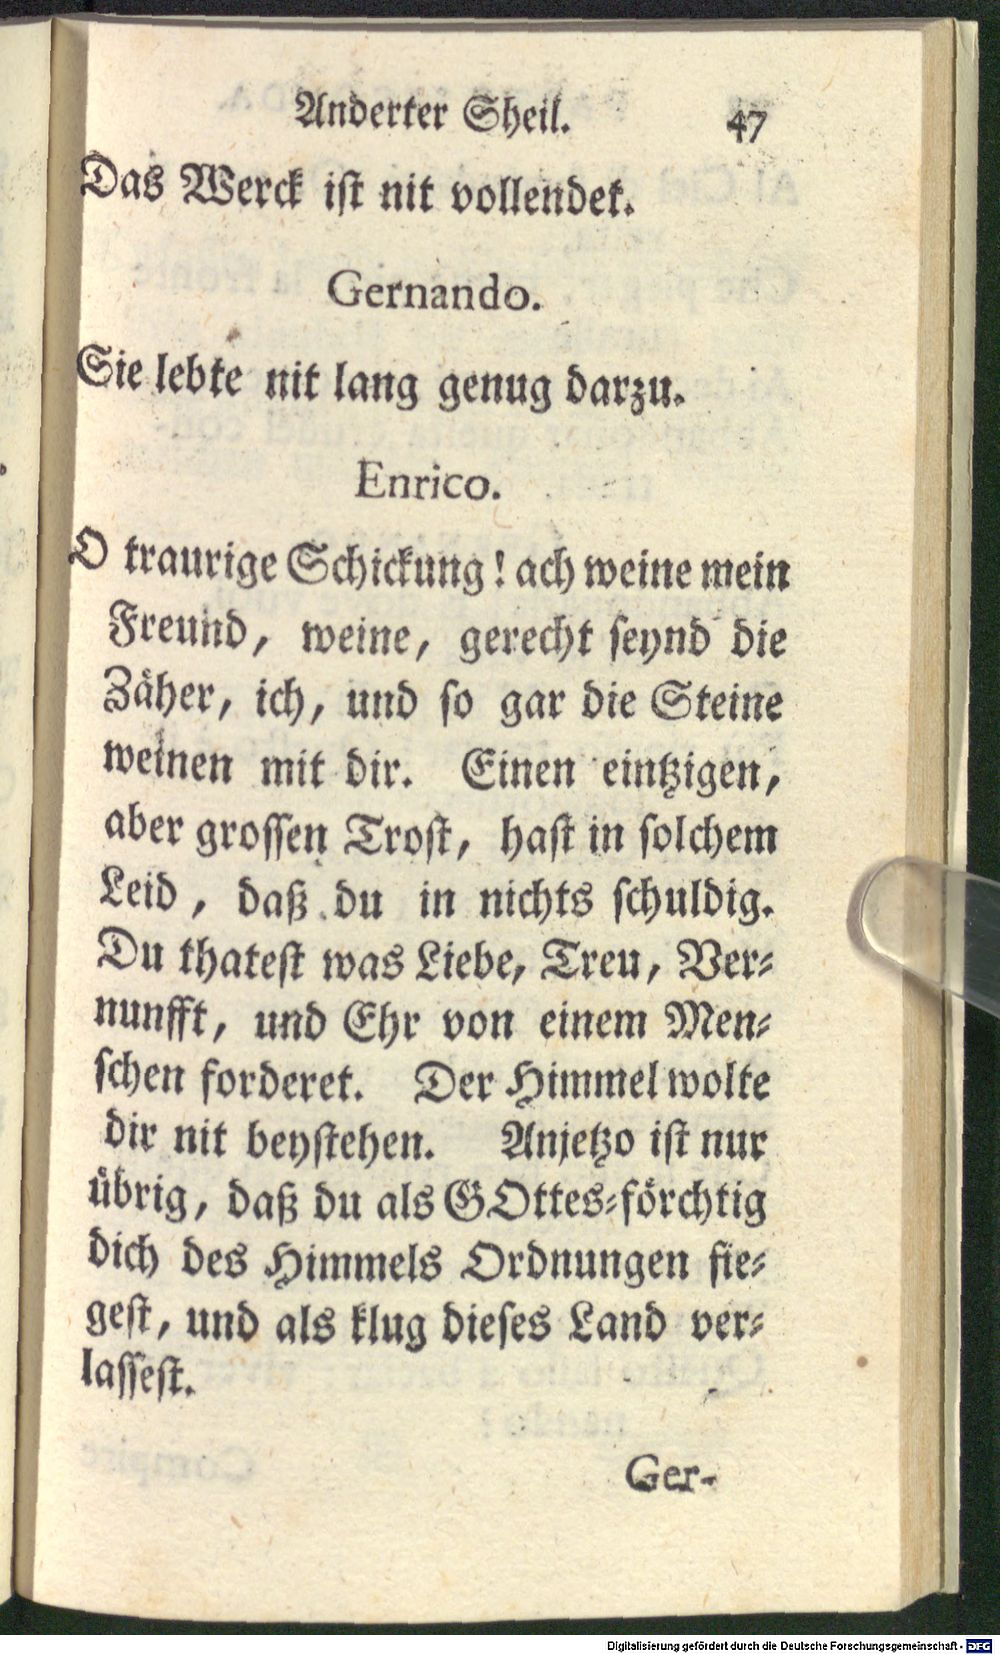 Anderter Theil. 47
Das Werck ist nit vollendet.
Gernando.
Sie lebte nit lang genug darzu.
Enrico.
O traurige Schickung! ach weine mein
Freund, weine, gerecht seynd die
Zäher, ich, und so gar die Steine
weinen mit dir. Einen eintzigen,
aber grossen Trost, hast in solchem
Leid, daß du in nichts schuldig.
Du thatest was Liebe, Treu, Ver-
nunfft, und Ehr von einem Men-
schen forderet. Der Himmel wolte
dir nit beystehen. Anjetzo ist nur
übrig, daß du als GOttes-förchtig
dich des Himmels Ordnungen fie-
gest, und als klug dieses Land ver-
lassest.
Ger-
Digitalisierung gefördert durch die Deutsche Forschungsgemeinschaft - DFG